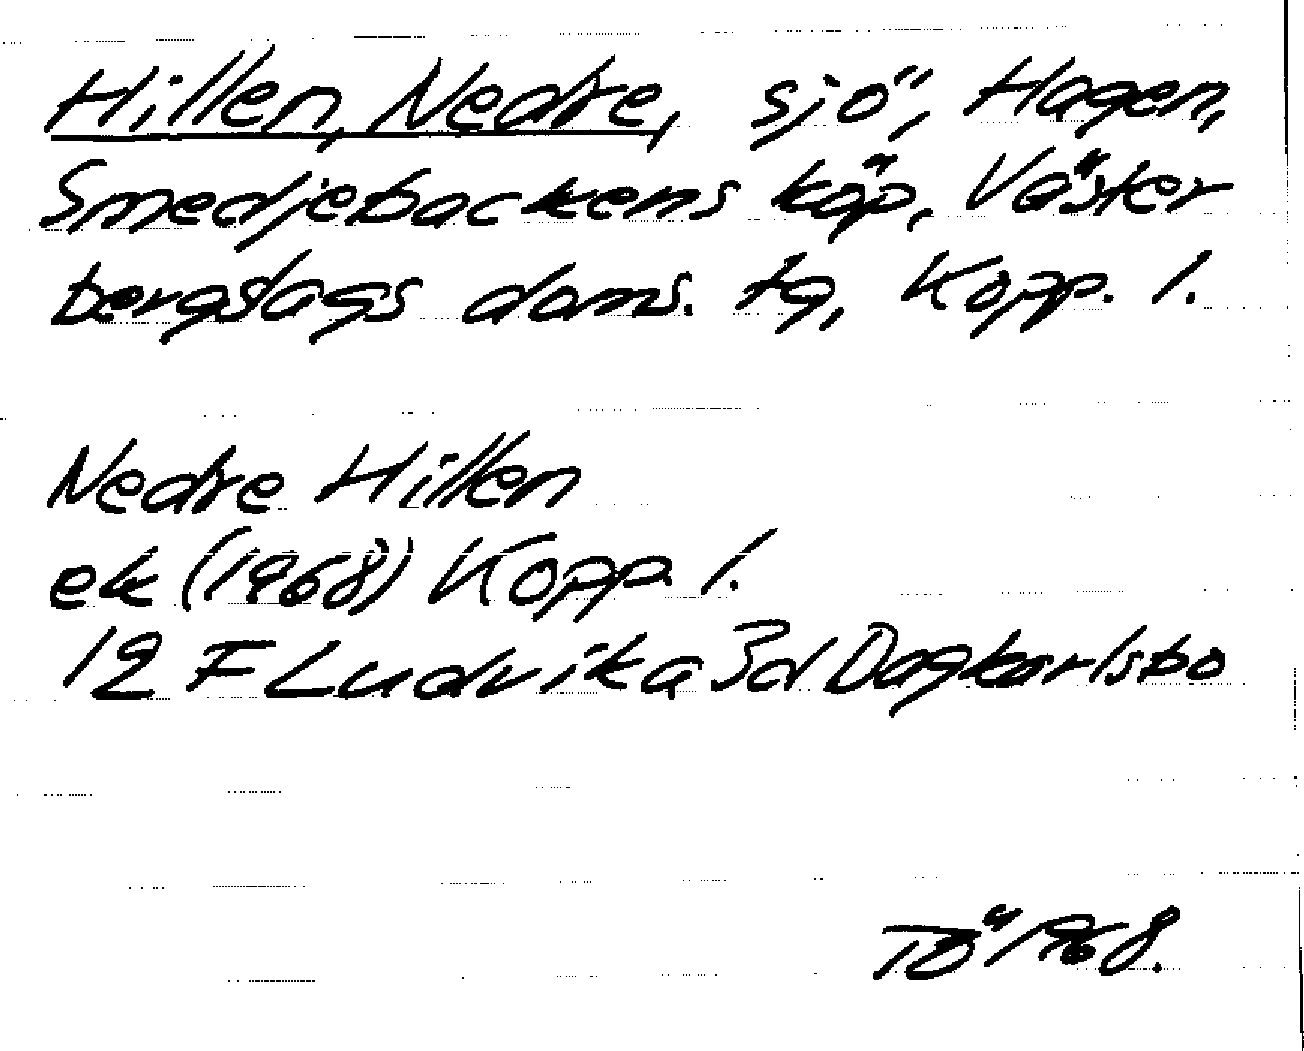 Hillen, Nedre, sjö, Hagen,
Smedjebackens köp, Väster
bergslags doms. tg, Kopp. l.
Nedre Hillen
ek (1968) Kopp. l.
12 F Ludvika 3d Dagkarlsbo
TÖ 1968.